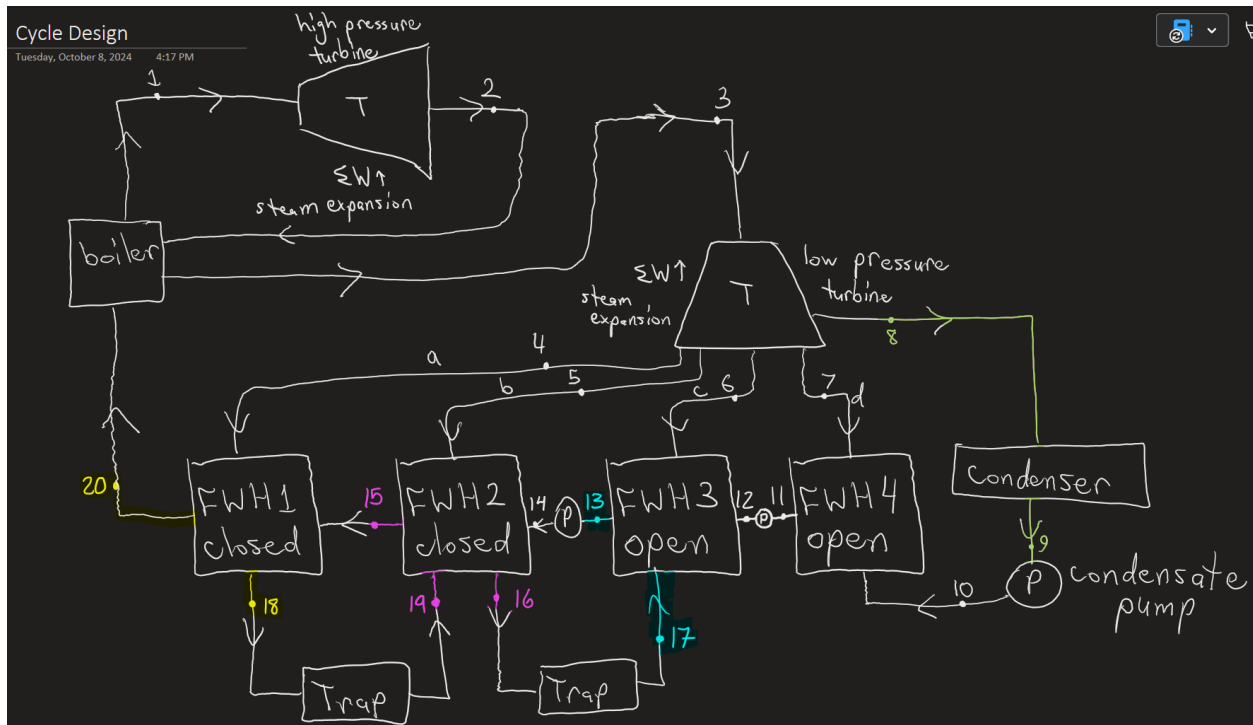 Cycle Design
Tuesday, October 8, 2024 4:17 PM
high pressure
turbine
1
T
2
3
ΣW↑
steam expansion
boiler
ΣW↑
steam
expansion
T
low pressure
turbine
8
a
4
b
5
c
6
7
d
20
FWH1
closed
15
FWH2
closed
14
P
13
FWH3
open
12
P
11
FWH4
open
condenser
9
P
condensate
pump
10
18
19
16
17
Trap
Trap